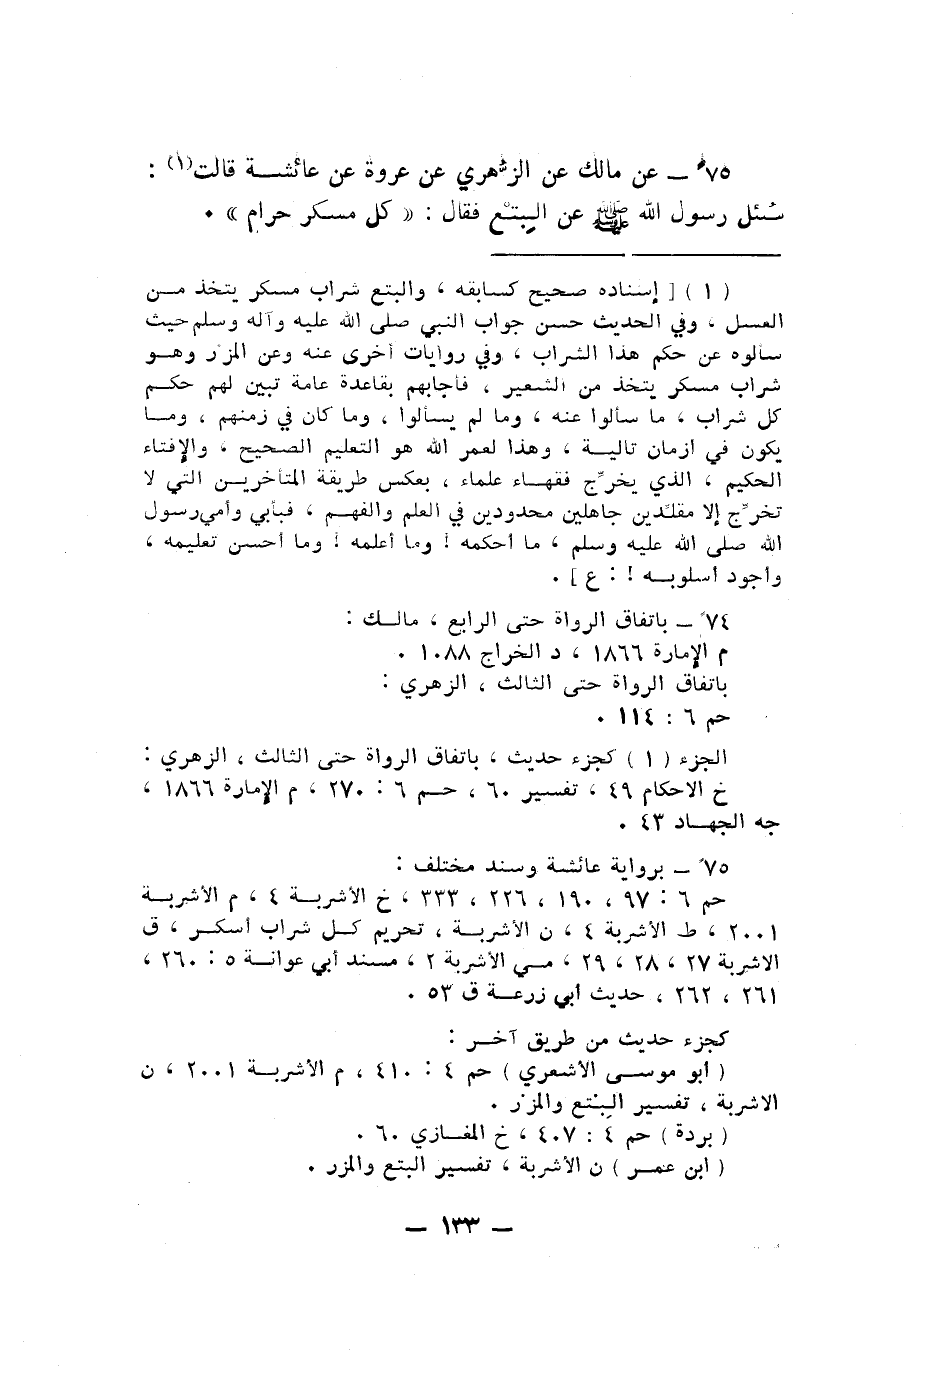 ٧٥* ــ عن مالك عن الزُّهري عن عروة عن عائشــة قالت(١) :
سُئل رسول الله ﷺ عن البِتْع فقال : « كل مسكر حرام » .
( ١ ) [ إسناده صحيح كسابقه ، والبتع شراب مسكر يتخذ مــن
العسل ، وفي الحديث حسن جواب النبي صلى الله عليه وآله وسلم حيث
سألوه عن حكم هذا الشراب ، وفي روايات أخرى عنه وعن المزر وهــو
شراب مسكر يتخذ من الشعير ، فأجابهم بقاعدة عامة تبين لهم حكــم
كل شراب ، ما سألوا عنه ، وما لم يسألوا ، وما كان في زمنهم ، ومــا
يكون في أزمان تاليــة ، وهذا لعمر الله هو التعليم الصحيح ، والإفتاء
الحكيم ، الذي يخرِّج فقهــاء علماء ، بعكس طريقة المتأخريــن التي لا
تخرِّج إلا مقلِّدين جاهلين محدودين في العلم والفهــم ، فبأبي وأمي رسول
الله صلى الله عليه وسلم ، ما أحكمه ! وما أعلمه ! وما أحسن تعليمه ،
وأجود أسلوبــه ! : ع ] .
٧٤* ــ باتفاق الرواة حتى الرابع ، مالــك :
م الإمارة ١٨٦٦ ، د الخراج ١٠٨٨ .
باتفاق الرواة حتى الثالث ، الزهري :
حم ٦ : ١١٤ .
الجزء ( ١ ) كجزء حديث ، باتفاق الرواة حتى الثالث ، الزهري :
خ الاحكام ٤٩ ، تفسير ٦٠ ، حــم ٦ : ٢٧٠ ، م الإمارة ١٨٦٦ ،
جه الجهــاد ٤٣ .
٧٥* ــ برواية عائشة وسند مختلف :
حم ٦ : ٩٧ ، ١٩٠ ، ٢٢٦ ، ٣٣٣ ، خ الأشربــة ٤ ، م الأشربــة
٢٠٠١ ، ط الأشربة ٤ ، ن الأشربــة ، تحريم كــل شراب أسكــر ، ق
الاشربة ٢٧ ، ٢٨ ، ٢٩ ، مــي الأشربة ٢ ، مسند أبي عوانــة ٥ : ٢٦٠ ،
٢٦١ ، ٢٦٢ ، حديث أبي زرعــة ق ٥٣ .
كجزء حديث من طريق آخــر :
( أبو موســى الاشعري ) حم ٤ : ٤١٠ ، م الأشربــة ٢٠٠١ ، ن
الاشربة ، تفسير البِتْع والمِزْر .
( بردة ) حم ٤ : ٤٠٧ ، خ المغــازي ٦٠ .
( ابن عمــر ) ن الأشربة ، تفسير البتع والمزر .
ــ ١٣٣ ــ